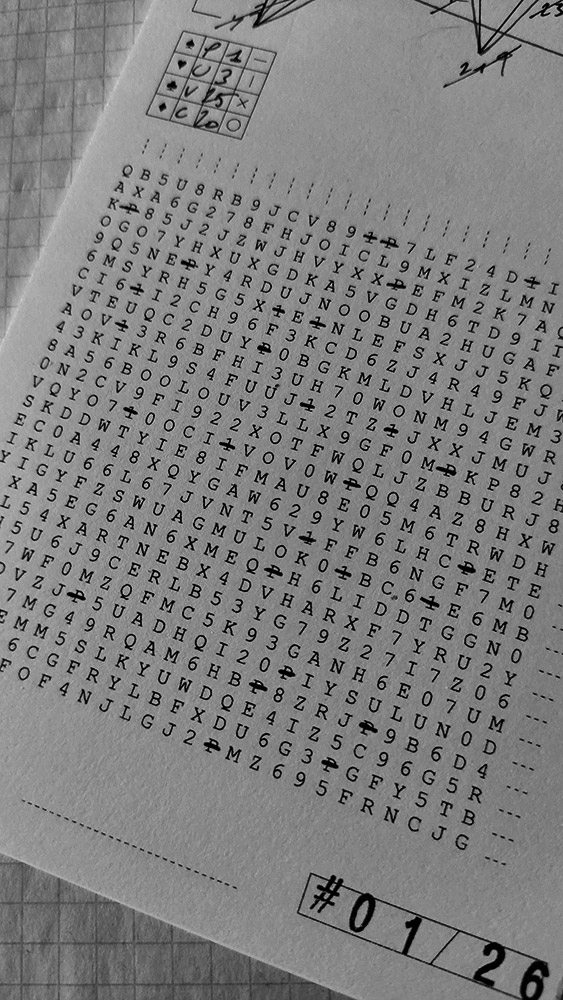 ♠ P 1 —
♥ U 3 |
♣ V 15 ×
♦ C 20 ○
Q B 5 U 8 R B 9 J C V 8 9 1 P 7 L F 2 4 D 1 I
A X A 6 G 2 7 8 F H J O I C L 9 M X I Z L M N
K P 8 5 J 2 J Z W J H V Y X X P E F M 2 K 7 A Q
O G O 7 Y H X U X G D K A 5 V G D H 6 T D 9 I I
9 Q 5 N E P Y 4 R D U J N O O B U A 2 H U G A F
6 M S Y R H 5 G 5 X 1 E 1 N L E F S X J J 5 K Q
C I 6 1 I 2 C H 9 6 F 3 K C D 6 Z J 4 R 4 9 F J W
V T E U Q C 2 D U Y P 0 B G K M L D V H L J E M 3
A O V 1 3 R 6 B F H I 3 U H 7 0 W O N M 9 4 G W R
4 3 K I K L 9 S 4 F U U J 1 2 T Z 1 J X X J M U J
8 A 5 6 B O O L O U V 3 L L X 9 G F 0 M P K P 8 2 H
0 N 2 C V 9 F I 9 2 2 X O T F W Q L J Z B B U R J 8
V Q Y O 7 1 0 O C I 1 V O V 0 W P Q Q 4 A Z 8 H X W
S K D D W T Y I E 8 I F M A U 8 E 0 5 M 6 T R W D H
E C 0 A 4 4 8 X Q Y G A W 6 2 9 Y W 6 L H C P E T E
I K L U 6 6 L 6 7 J V N T 5 V 1 F F B 6 N G F 7 M 0
Y I G Y F Z S W U A G M U L O K 0 1 B C 6 1 E 6 M B
X A 5 E G 6 A N 6 X M E Q P H 6 L I D D T G G N 0
L 5 4 X A R T N E B X 4 D V H A R X F 7 Y R U 2 Y
5 U 6 J 9 C E R L B 5 3 Y G 7 9 Z 2 7 I 7 Z 0 6
7 W F 0 M Z Q F M C 5 K 9 3 G A N H 6 E 0 7 U M
D V Z J P 5 U A D H Q I 2 0 P I Y S U L U N 0 D
7 M G 4 9 R Q A M 6 H B P 8 Z R J P 9 B 6 D 4
E M M 5 S L K Y U W D Q E 4 I Z 5 C 9 6 G 5 R
6 C G F R Y L B F X D U 6 G 3 P G F Y 5 T B
F O F 4 N J L G J 2 P M Z 6 9 5 F R N C J G
#01/26